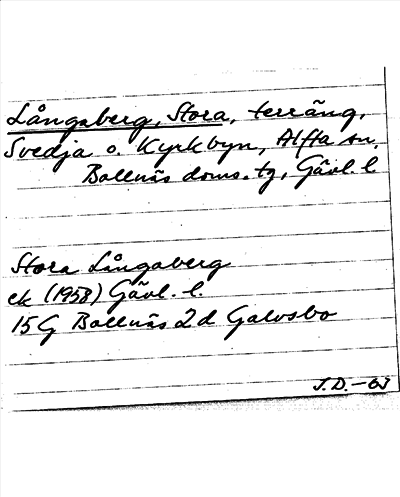 Långaberg, Stora, terräng,
Svedja o. Kyrkbyn, Alfta sn,
Bollnäs doms. tg, Gävl. l.
Stora Långaberg
ek (1958) Gävl. l.
15G Bollnäs 2d Galvsbo
J.D. -63